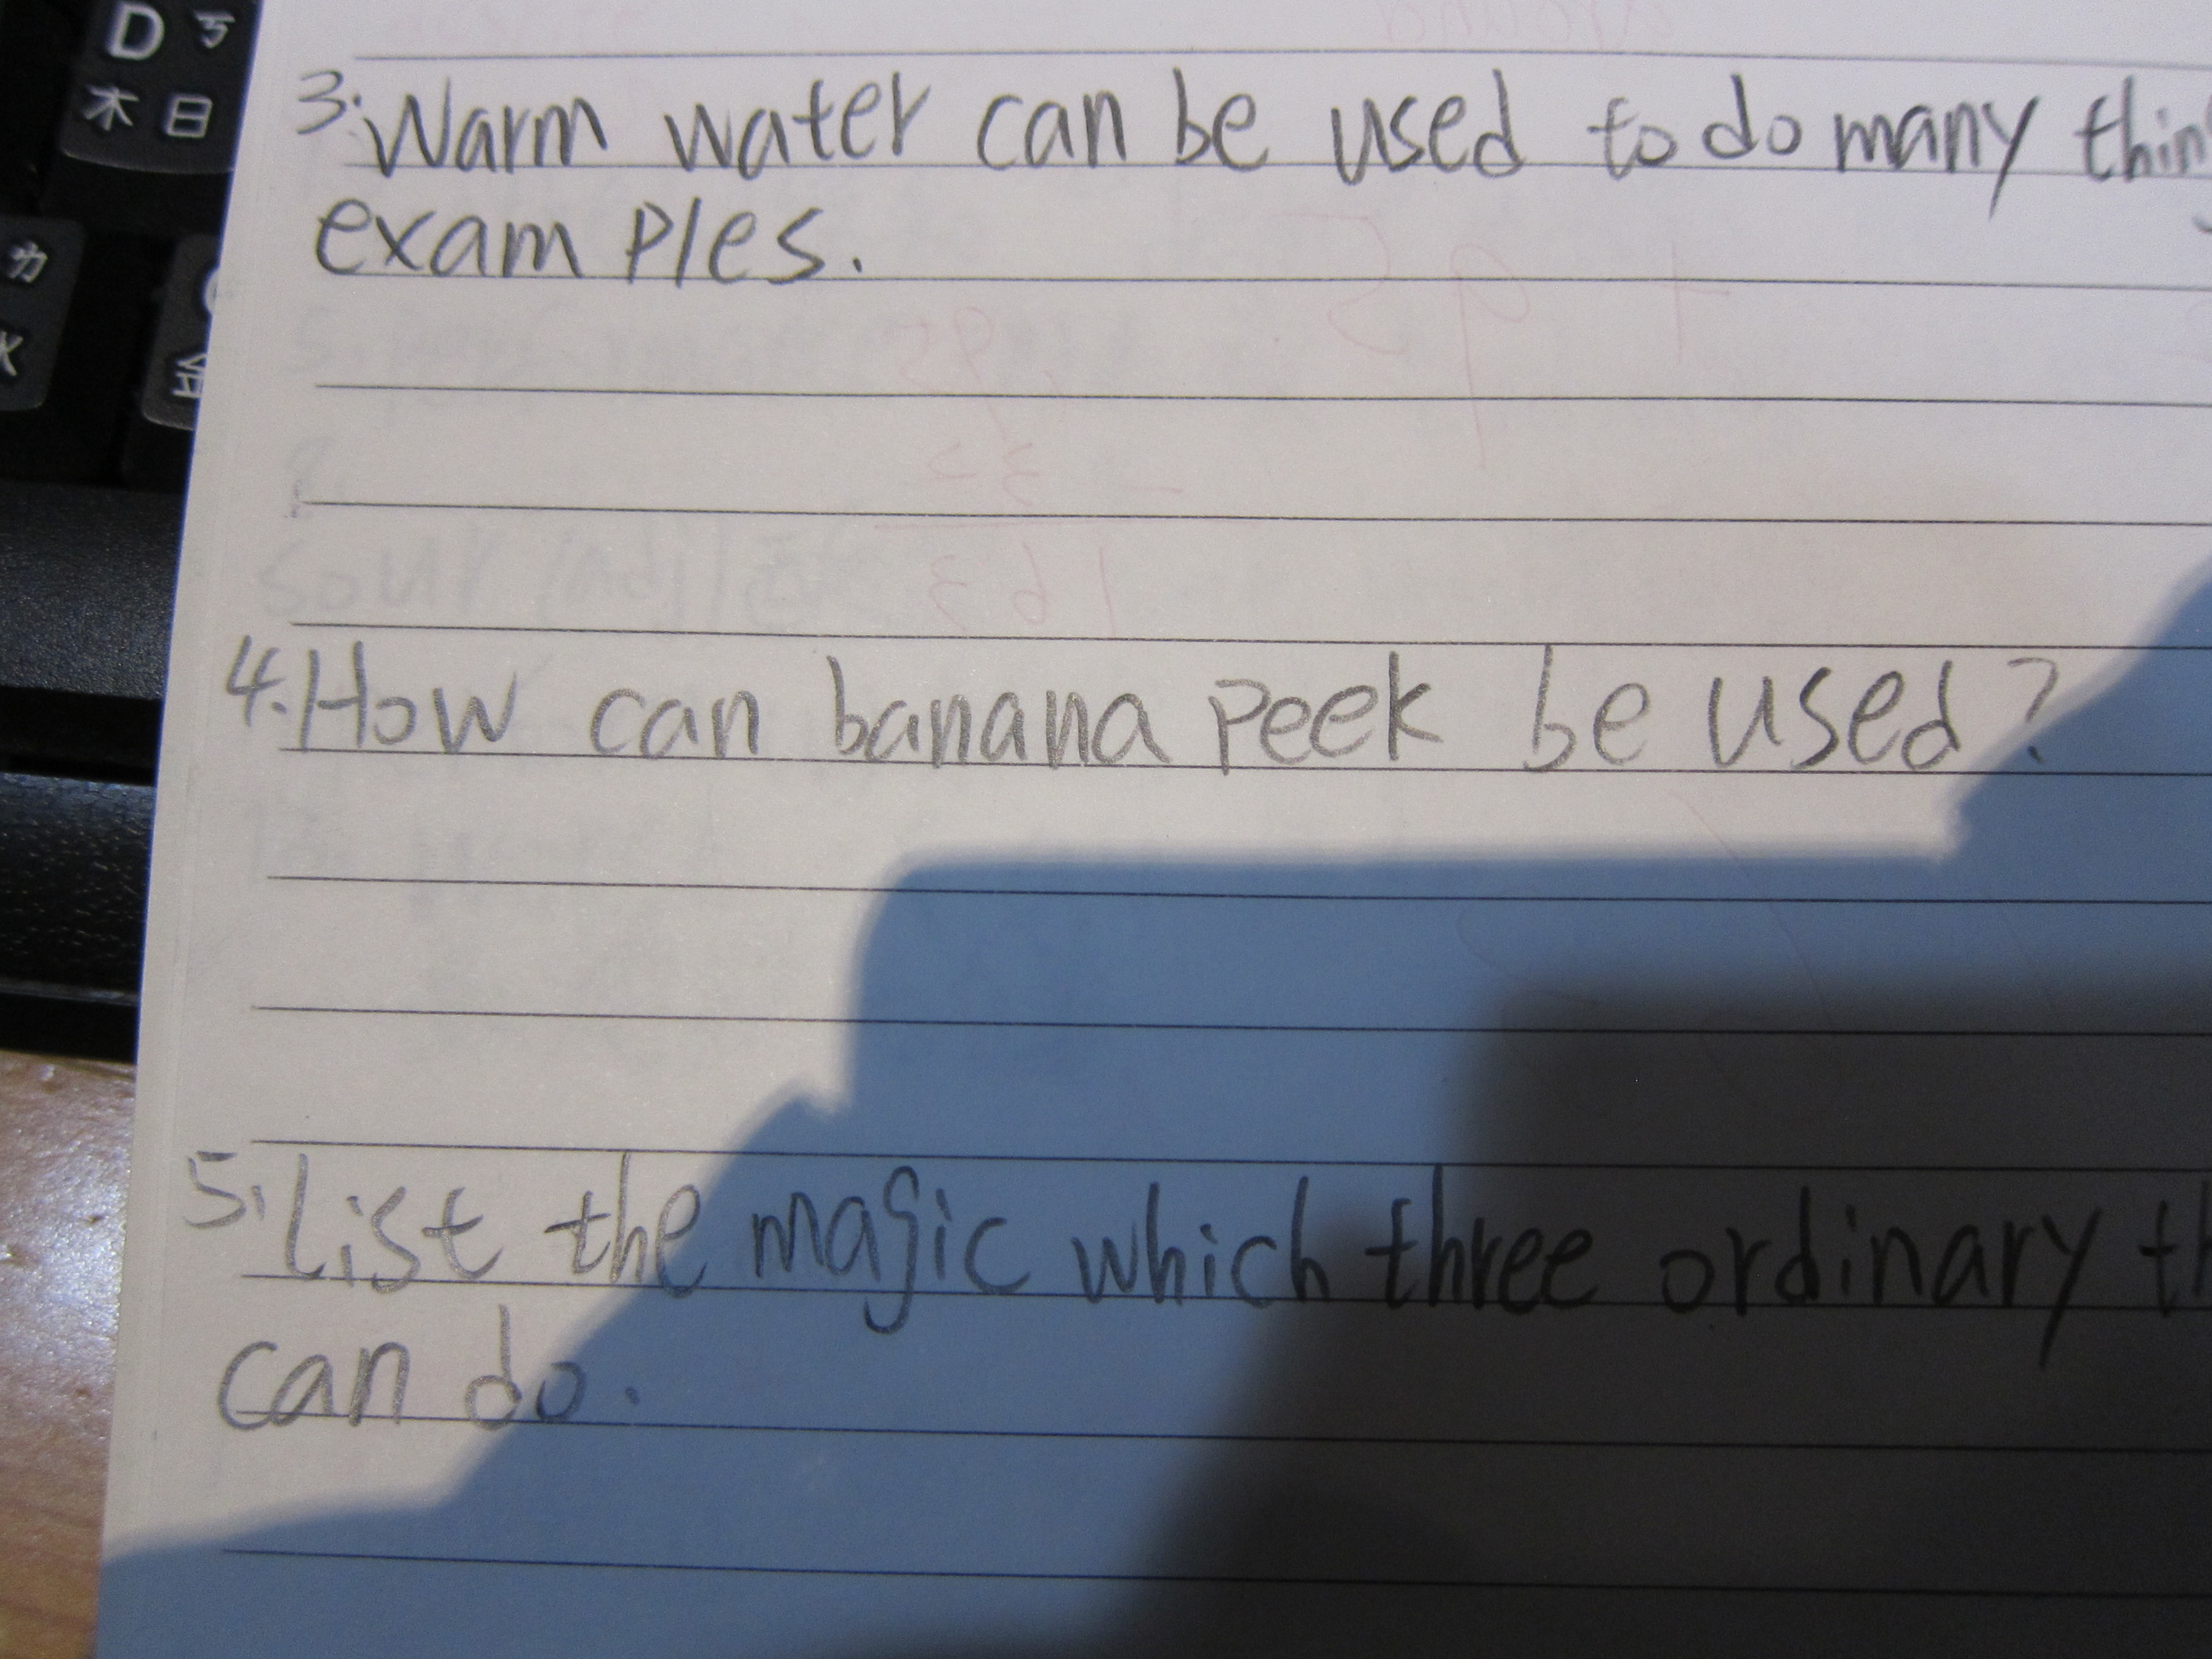 D ㄎ
木 日
ㄌ
3. Warm water can be used to do many
examples.
4. How can banana peek be used?
5. List the magic which three ordinary
can do.